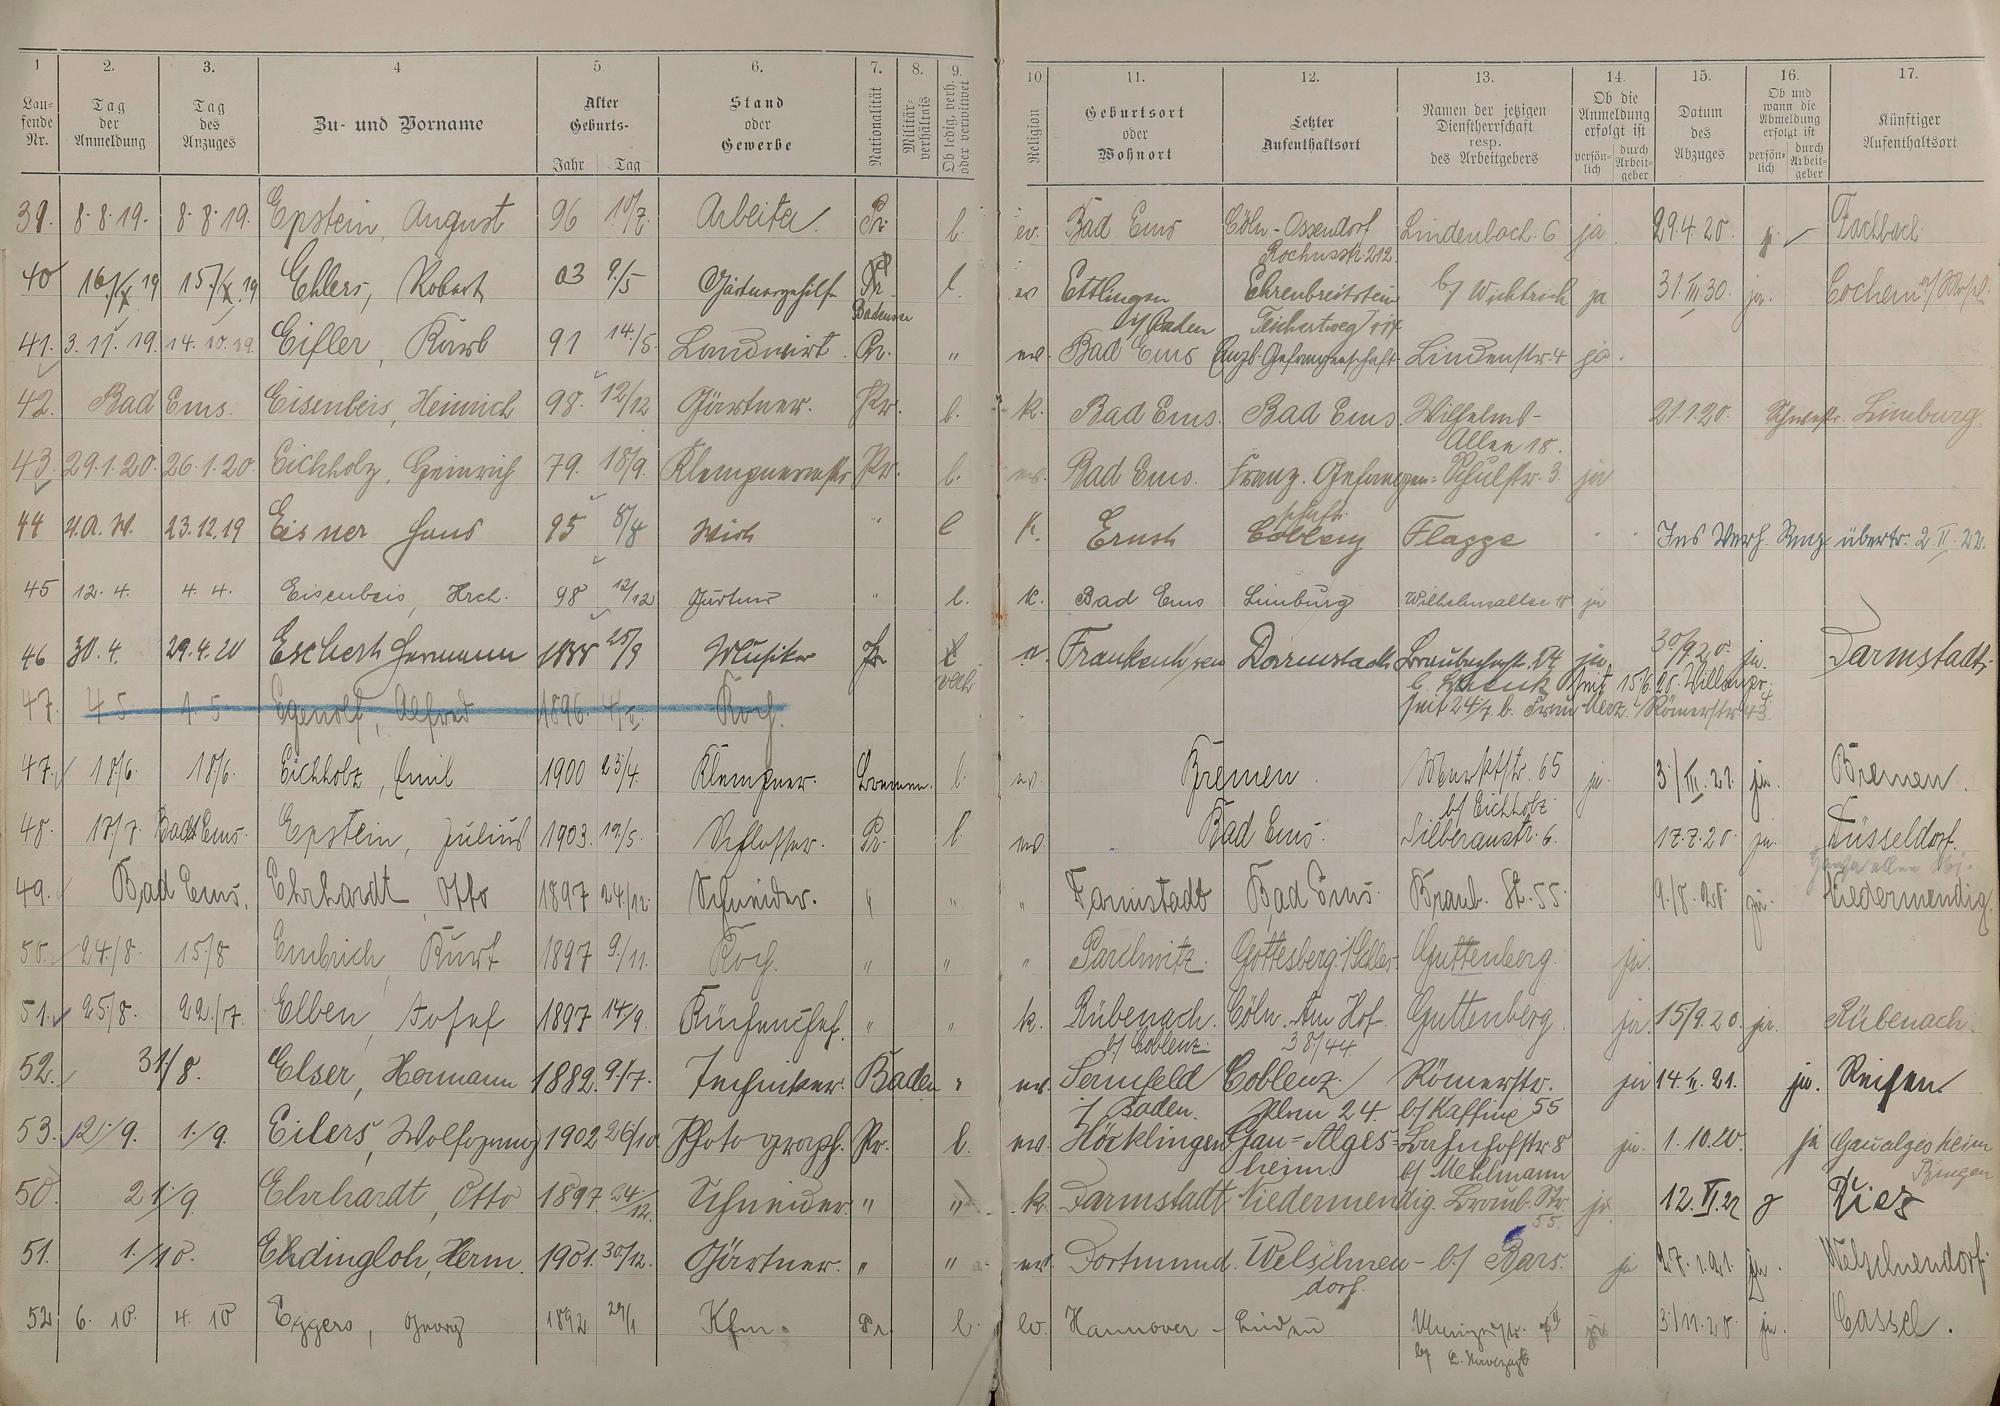 1 2. 3. 4 5. 6. 7. 8. 9. 10. 11. 12. 13. 14. 15. 16. 17.
Lau-fende Nr. Tag der Anmeldung Tag des Anzuges Zu- und Vorname Alter Geburts- Jahr Tag Stand oder Gewerbe Nationalität Militär-verhältnis Ob ledig, verh. oder verwitwet Religion Geburtsort oder Wohnort Letzter Aufenthaltsort Namen der jetzigen Dienstherrschaft resp. des Arbeitgebers Ob die Anmeldung erfolgt ist persön-lich durch Arbeit-geber Datum des Abzuges Ob und wann die Abmeldung erfolgt ist persön-lich durch Arbeit-geber Künftiger Aufenthaltsort
39. 8.8.19. 8.8.19. Epstein, August 96 10/7. Arbeiter Pr. l. ev. Bad Ems Cöln-Ossendorf Lindenbach 6 ja 29.4.20. Fachbach
Rochusstr. 212
40 16./X 19 15./X. 19 Ehlers, Robert 03 9./5 Gärtnergehilfe Pr. l. ev Ettlingen Ehrenbreitstein b/ Wichtrich ja 31.III.30. ja. Cochem a/Mosel.
Badenser i/ Baden Teichertweg
41. 3.11.19. 14.10.19. Eifler, Karl 91 14./5. Landwirt. Pr. " ev. Bad Ems Engl. Gefangenschaft Lindenstr. 4 ja.
42. Bad Ems. Eisenbeis, Heinrich 98. 12/12 Gärtner. Pr. l. k. Bad Ems. Bad Ems. Wilhelms- 21.1.20. Limburg.
Allee 18.
43. 29.1.20. 26.1.20. Eichholz, Heinrich 79. 18/9. Klempnermstr Pr. l. ev. Bad Ems. Franz. Gefangen- Schulstr. 3. ja
schaft.
44 v.A.W. 23.12.19 Eisner Hans 95 8/8 Wirt " l k. Ernst Coblenz Flagge Ins Verh. Reg. übertr. 2.II.22.
45 12.4. 4.4. Eisenbeis, Hrch. 98 12/12 Gärtner " l. k. Bad Ems Limburg Wilhelmsallee 18 ja
46 30.4. 29.4.20 Eschert Hermann 1888 25/9 Musiker Pr l ev. Frankenhausen Darmstadt ja 30/9.20. ja. Darmstadt.
verh seit 15.6.20.
47. 4 5 4. 5 Egenolf, Alfred 1896. Koch. seit 24/7. b. Frau Merz. Römerstr. 43.
47. 18/6. 18/6. Eichholz, Emil 1900 23/4. Klempner. Bremen. l. ev. Bremen. Marktstr. 65 ja. 3/III.21. ja. Bremen.
b/ Eichholz
48. 17/7. Bad Ems. Epstein, Julius 1903. 19/5. Schlosser. Pr. l ev. Bad Ems. Silberaustr. 6. 17.7.20. ja. Düsseldorf.
49. Bad Ems. Ehrhardt Otto 1897 24./12. Schneider. " " " Darmstadt Bad Ems. Braub. St. 55. 9./8.20 ja. Niedermendig.
50. 24./8. 15/8 Embrich Kurt 1897 9./11. Koch. " " " Parchwitz. Gottesberg i/Schles. Guttenberg. ja.
51. 25/8. 22./7. Elben, Josef 1897 14/9. Küchenchef. " " k. Rübenach. Cöln. Am Hof. Guttenberg ja. 15/9.20. ja. Rübenach.
b/ Coblenz. 38/44.
52. 31/8. Elser, Hermann 1882. 9/7. Techniker. Baden " ev. Sennfeld Coblenz. Römerstr. ja 14.II.21. ja. Reifen
i/ Baden. Plan 24. b/ Kaffine 55
53. 2./9. 1./9. Eilers, Wolfgang 1902 26/10. Photograph. Pr. l. ev. Höcklingen Gau-Alges- Bahnhofstr 8 ja. 1.10.20. ja Gaualgesheim
heim b/ Mehlmann Bingen
50. 21./9. Ehrhardt, Otto 1897. 24./12. Schneider " " k. Darmstadt Niedermendig. Braub. Str. ja. 12.VI.22 Diez
55.
51. 1./10. Ehdingloh, Herm. 1901. 30/12. Gärtner. " " ev. Dortmund. Welschnen- b/ Bars. ja 27.1.21. ja. Welschnendorf.
dorf.
52 6. 10. 4. 10 Eggers, Georg 1892 29/1 Kfm. Pr. l. ev. Hannover - Linden ja 3/11.20 ja. Cassel.